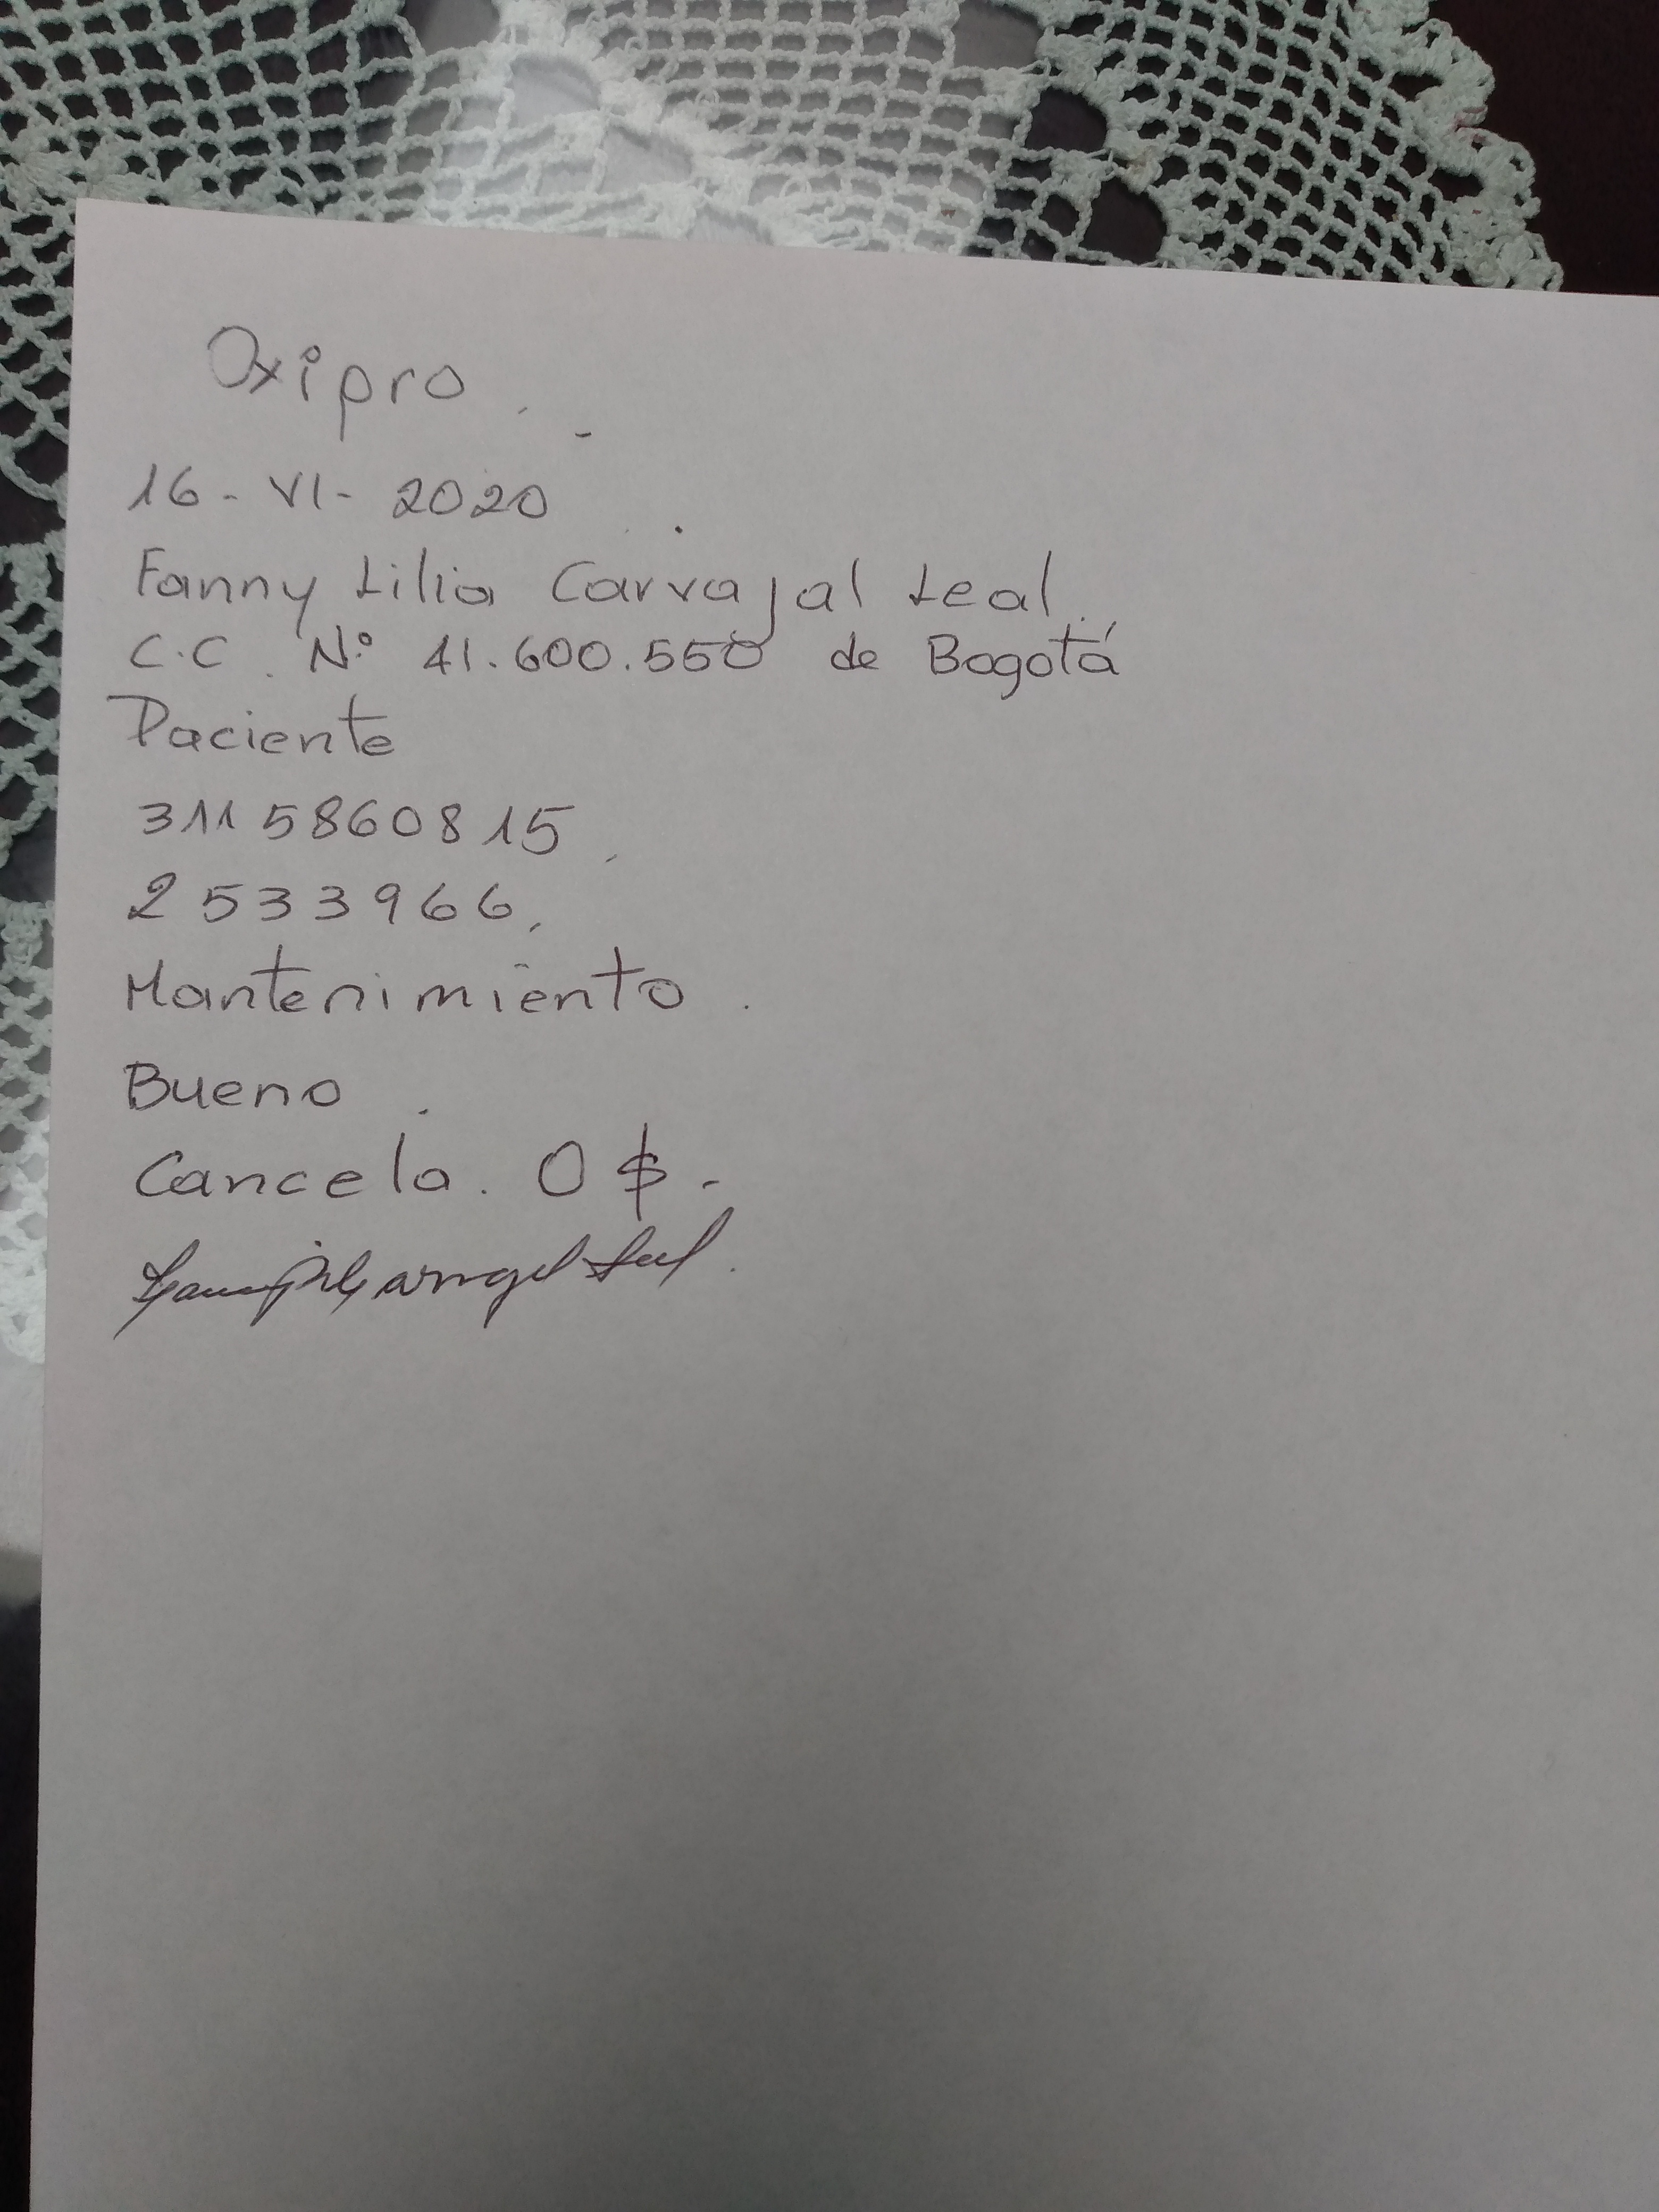 Oxipro
16 - VI - 2020
Fanny Lilia Carvajal Leal.
C.C. Nº 41.600.550 de Bogotá
Paciente
311 5860815
2533966
Mantenimiento
Bueno
Cancela. 0 $.